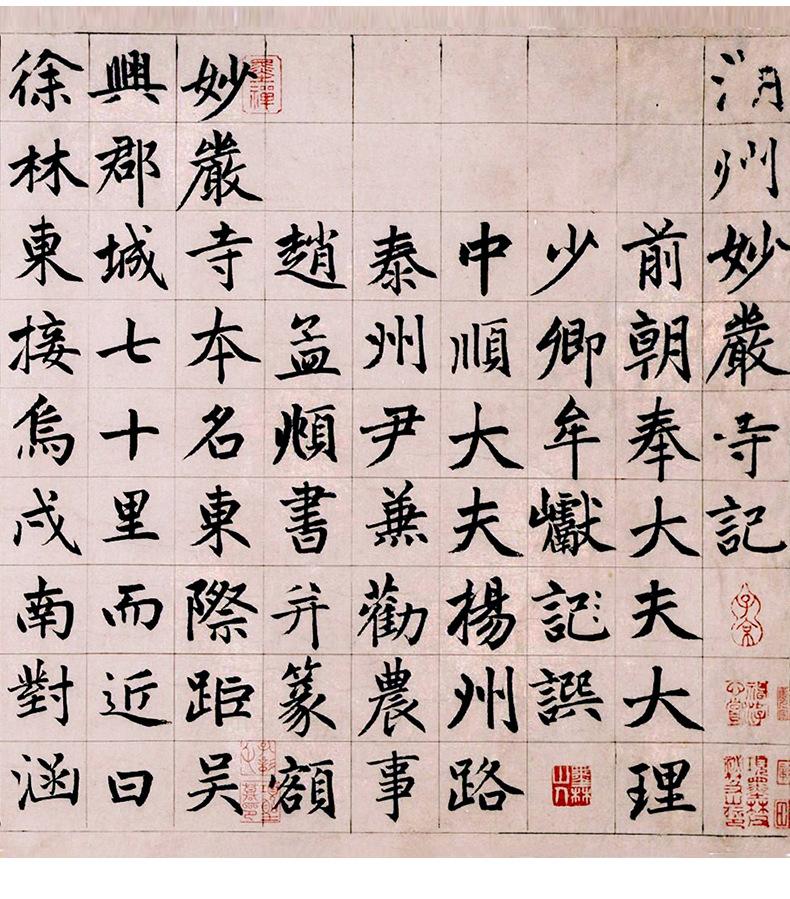 湖州妙嚴寺記
前朝奉大夫大理
少卿牟巘記譔
中順大夫楊州路
泰州尹兼勸農事
趙孟頫書并篆額
妙嚴寺本名東際距吳
興郡城七十里而近曰
徐林東接烏戍南對涵